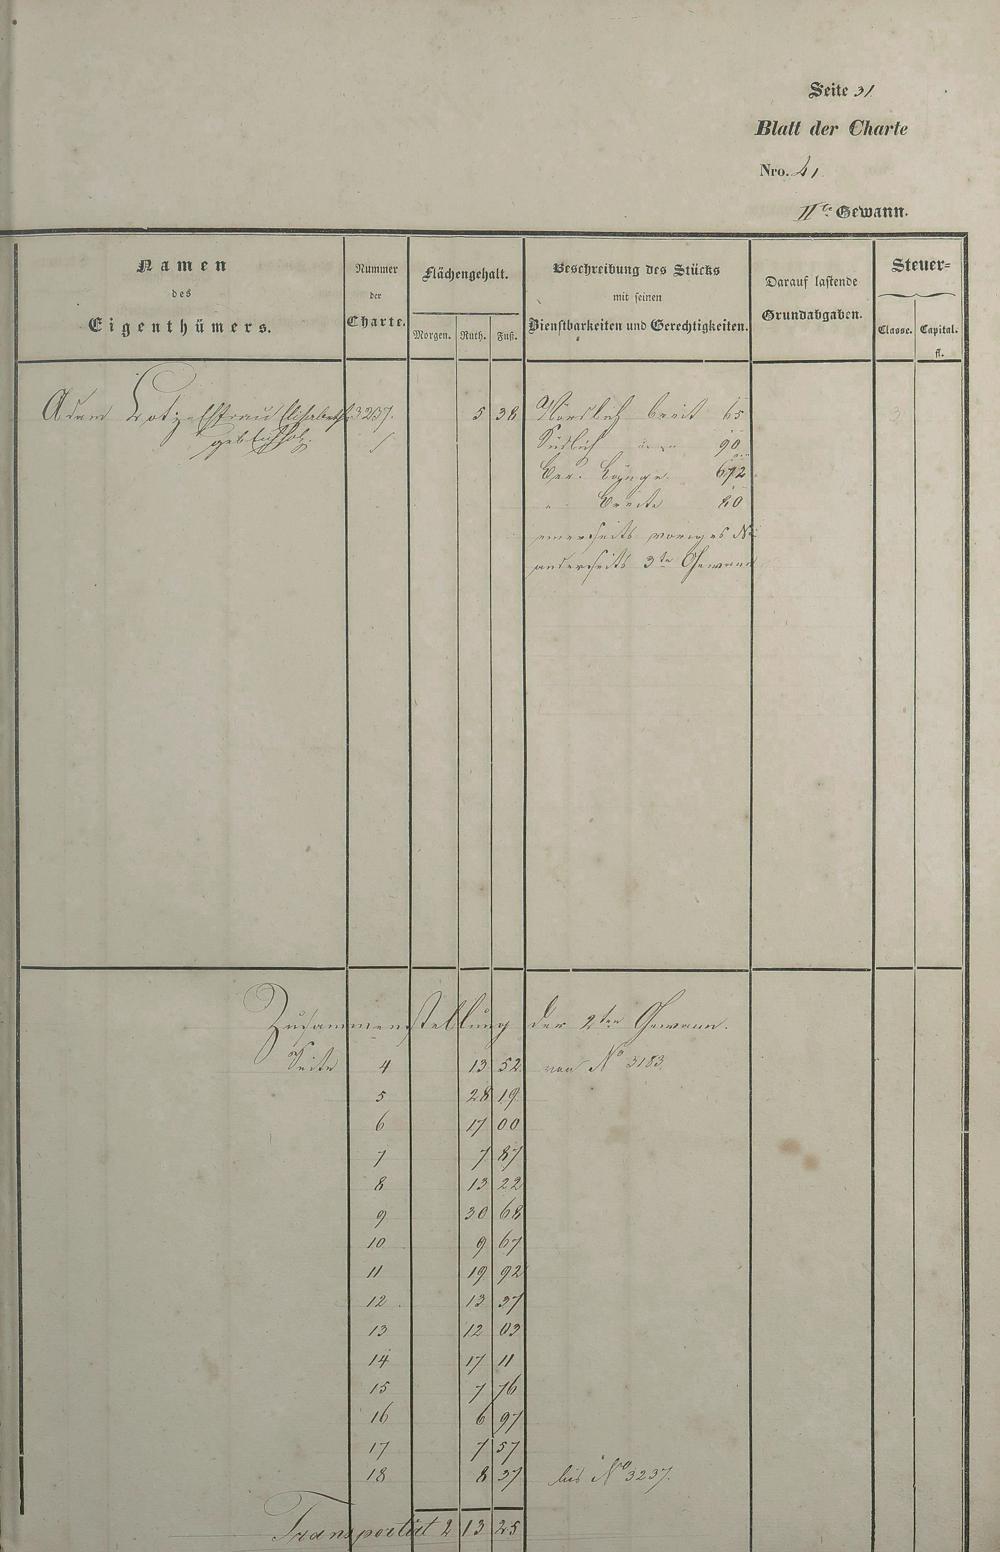 Seite 31
Blatt der Charte
Nro. 41
IIte Gewann.
Namen des Eigenthümers.
Nummer der Charte.
Flächengehalt.
Morgen. Ruth. Fuß.
Beschreibung des Stücks mit seinen Dienstbarkeiten und Gerechtigkeiten.
Darauf lastende Grundabgaben.
Steuer=
Classe. Capital. fl.
Adam Ehefrau Elisabetha 3237. 5 38 Nördlich breit 65
geb. Südlich 90
Ber. Länge 672
" Breite 80
einerseits voriges No
anderseits 3te Gewann
3
Zusammenstellung der 2ten Gewann.
Seite 4 13 52 von No 3183.
5 28 19
6 17 00
7 7 87
8 13 22
9 30 68
10 9 67
11 19 92
12 13 37
13 12 03
14 17 11
15 7 76
16 6 97
17 7 57
18 8 37 bis No 3237.
Transportirt 2 13 25